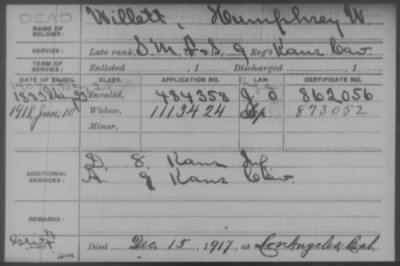 DEAD
NAME OF SOLDIER: Willett, Humphrey W.
SERVICE: Late rank, S M, F & S, 9 Reg't Kans Cav.
TERM OF SERVICE: Enlisted , 1 Discharged , 1
DATE OF FILING. CLASS. APPLICATION NO. LAW. CERTIFICATE NO.
1883 Invalid, 484358 862056
1918, Jan. 10 Widow, 1113424 873052
Minor,
ADDITIONAL SERVICES: D. 8. Kans Inf
A. 9 Kans Cav.
REMARKS:
Died Dec. 15, 1917, at Los Angeles, Cal.